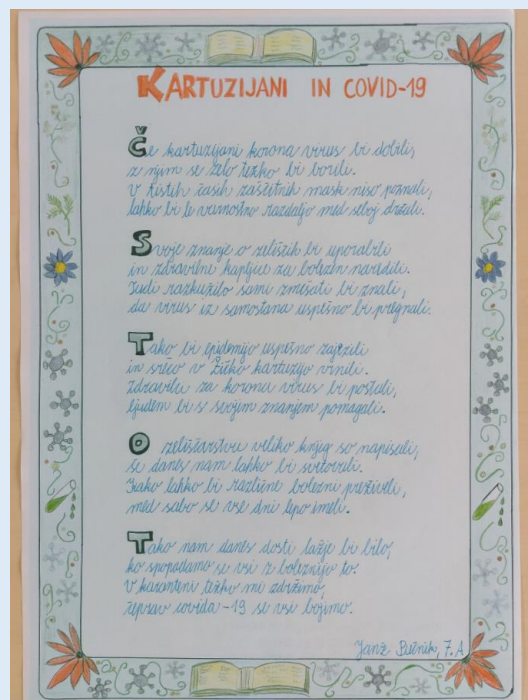 KARTUZIJANI IN COVID-19
Če kartuzijani korona virus bi dobili,
z njim se zelo težko bi borili.
V tistih časih zaščitnih mask niso poznali,
lahko bi le varnostno razdaljo med seboj držali.
Svoje znanje o zeliščih bi uporabili
in zdravilne kapljice za bolezn naredili.
Tudi razkužilo sami zmešati bi znali,
da virus iz samostana uspešno bi pregnali.
Tako bi epidemijo uspešno zajezili
in srečo v Žičko kartuzijo vrnili.
Zdravilci za korona virus bi postali,
ljudem bi s svojim znanjem pomagali.
O zeliščarstvu veliko knjig so napisali,
še danes nam lahko bi svetovali.
Kako lahko bi različne bolezni preživeli,
med sabo se vse dni lepo imeli.
Tako nam danes dosti lažje bi bilo,
ko spopadamo se vsi z boleznijo to.
V karanteni težko mi zdržimo,
čeprav covida-19 se vsi bojimo.
Janž Pučnik, 7. A